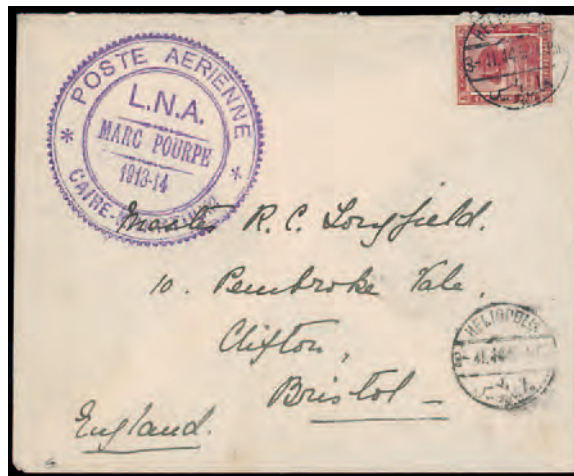 POSTE AERIENNE
L.N.A.
MARC POURPE
1913-14
CAIRE-
HELIOPOLIS
Master R. C. Longfield.
10. Pembroke Vale,
Clifton,
Bristol —
England.
HELIOPOLIS